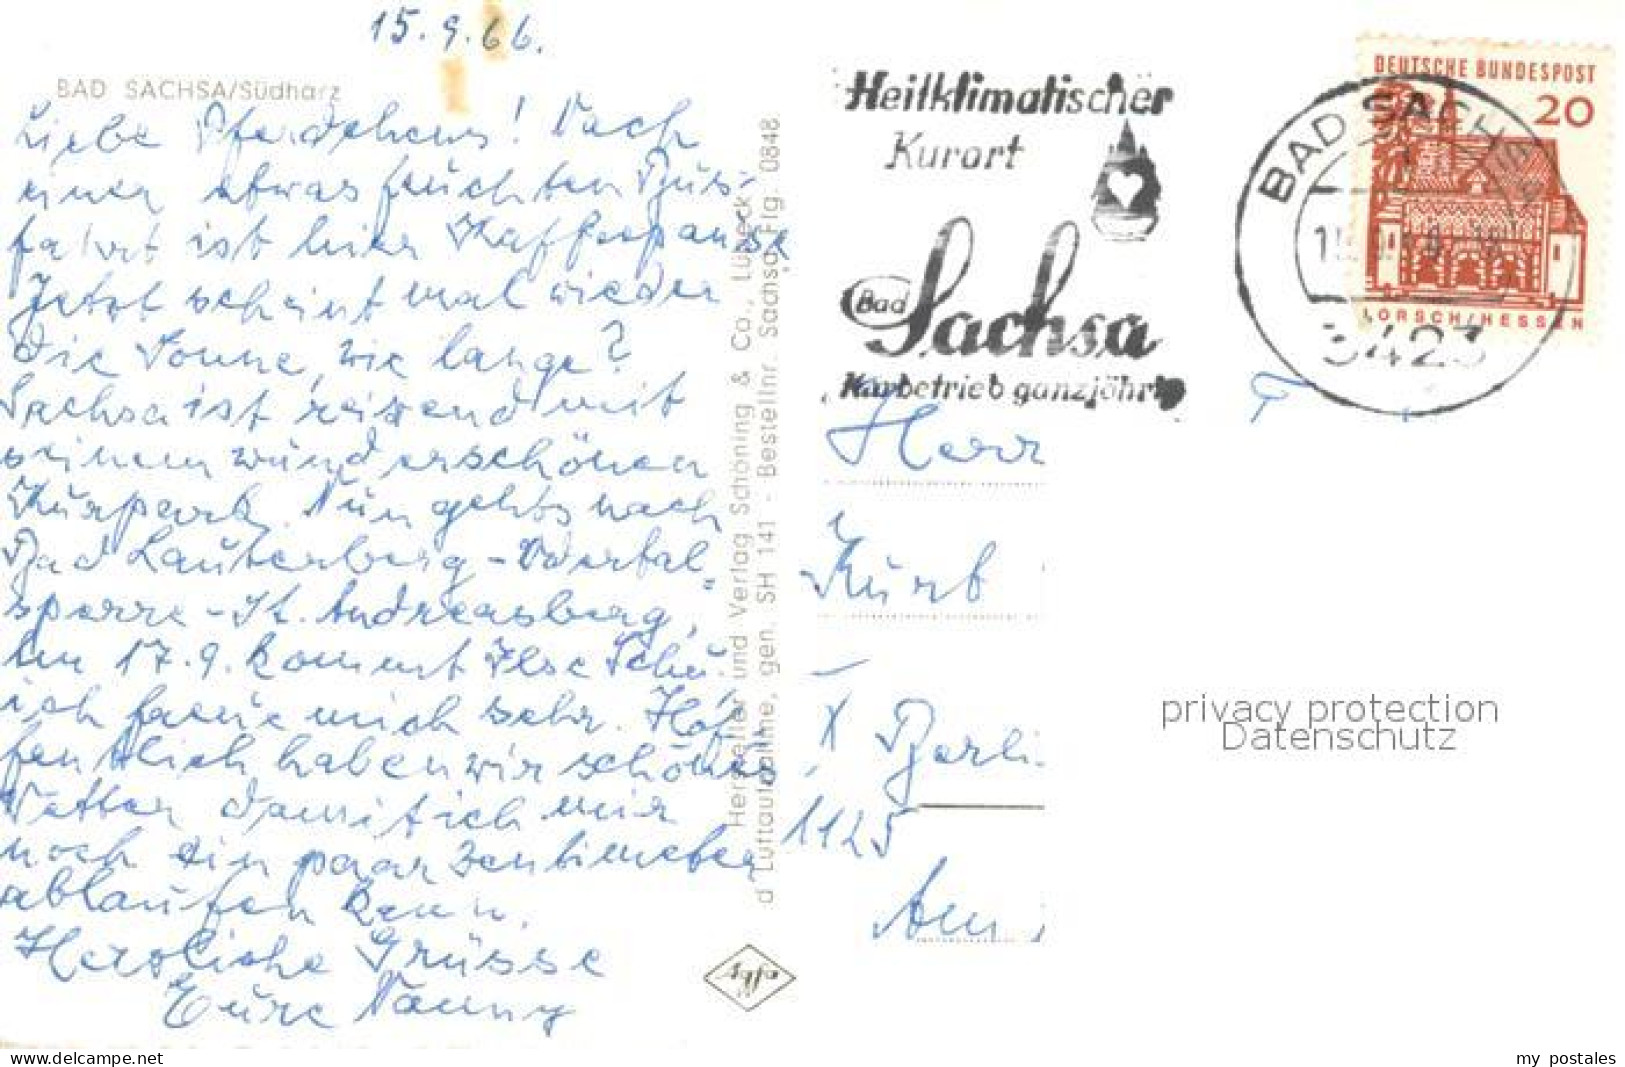 15.9.66.
BAD SACHSA/Südharz
Liebe ! Nach
einer etwas feuchten Bus-
fahrt ist hier Kaffeepause
Jetzt scheint mal wieder
die Sonne, wie lange?
Sachsa ist reizend mit
seinem wunderschönen
Kurpark. Nun gehts nach
Bad Lauterberg - Odertal=
sperre - St. Andreasberg,
Am 17.9. kommt Ilse
ich freue mich sehr. Hof
fentlich haben wir schönes
Wetter damit ich mir
noch ein paar Zentimeter
ablaufen kann.
Herzliche Grüsse
Eure Nanny
Hersteller und Verlag Schöning & Co., Lübeck
d Luftaufnahme, gen. SH 141 - Bestellnr. Sachsa Flg. 0848
Heilklimatischer
Kurort
Bad Sachsa
Kurbetrieb ganzjährig
DEUTSCHE BUNDESPOST
20
LORSCH/HESSEN
BAD SACHSA
3423
Herr
Kurt
1 Berli
1125
Am
privacy protection
Datenschutz
www.delcampe.net
my postales